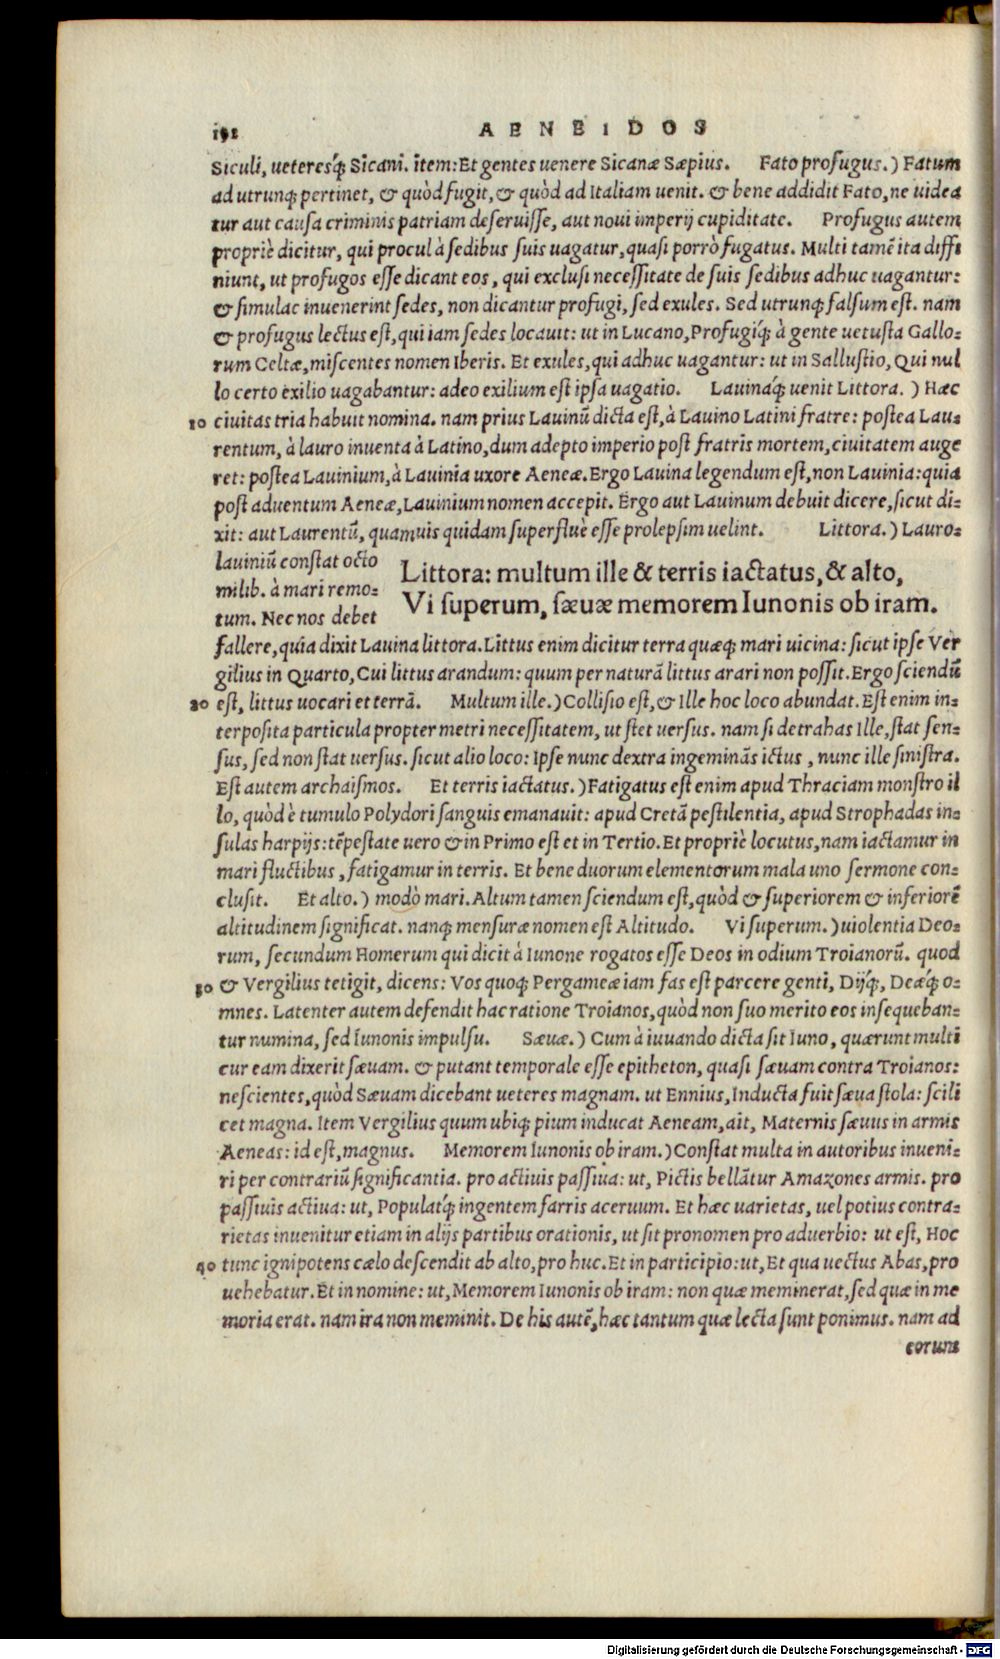 192 AENEIDOS
Siculi, ueteresq́; Sicani. item: Et gentes uenere Sicanæ Sæpius. Fato profugus.) Fatum
ad utrunq; pertinet, & quòd fugit, & quòd ad Italiam uenit. & bene addidit Fato, ne uidea
tur aut causa criminis patriam deseruisse, aut noui imperij cupiditate. Profugus autem
propriè dicitur, qui procul à sedibus suis uagatur, quasi porrò fugatus. Multi tamẽ ita diffi
niunt, ut profugos esse dicant eos, qui exclusi necessitate de suis sedibus adhuc uagantur:
& simulac inuenerint sedes, non dicantur profugi, sed exules. Sed utrunq; falsum est. nam
& profugus lectus est, qui iam sedes locauit: ut in Lucano, Profugiq́; à gente uetusta Gallo=
rum Celtæ, miscentes nomen Iberis. Et exules, qui adhuc uagantur: ut in Sallustio, Qui nul
lo certo exilio uagabantur: adeo exilium est ipsa uagatio. Lauinaq́; uenit Littora. ) Hæc
10 ciuitas tria habuit nomina. nam prius Lauinũ dicta est, à Lauino Latini fratre: postea Lau=
rentum, à lauro inuenta à Latino, dum adepto imperio post fratris mortem, ciuitatem auge
ret: postea Lauinium, à Lauinia uxore Aeneæ. Ergo Lauina legendum est, non Lauinia: quia
post aduentum Aeneæ, Lauinium nomen accepit. Ergo aut Lauinum debuit dicere, sicut di=
xit: aut Laurentũ, quamuis quidam superfluè esse prolepsim uelint. Littora.) Lauro=
lauiniũ constat octo
milib. à mari remo=
tum. Nec nos debet
Littora: multum ille & terris iactatus, & alto,
Vi superum, sæuæ memorem Iunonis ob iram.
fallere, quia dixit Lauina littora. Littus enim dicitur terra quæq; mari uicina: sicut ipse Ver
gilius in Quarto, Cui littus arandum: quum per naturã littus arari non possit. Ergo sciendũ
20 est, littus uocari et terrã. Multum ille.) Collisio est, & Ille hoc loco abundat. Est enim in=
terposita particula propter metri necessitatem, ut stet uersus. nam si detrahas Ille, stat sen=
sus, sed non stat uersus. sicut alio loco: Ipse nunc dextra ingeminãs ictus , nunc ille sinistra.
Est autem archaismos. Et terris iactatus.) Fatigatus est enim apud Thraciam monstro il
lo, quòd è tumulo Polydori sanguis emanauit: apud Cretã pestilentia, apud Strophadas in=
sulas harpijs: tẽpestate uero & in Primo est et in Tertio. Et propriè locutus, nam iactamur in
mari fluctibus, fatigamur in terris. Et bene duorum elementorum mala uno sermone con=
clusit. Et alto.) modò mari. Altum tamen sciendum est, quòd & superiorem & inferiorẽ
altitudinem significat. nanq; mensuræ nomen est Altitudo. Vi superum.) uiolentia Deo=
rum, secundum Homerum qui dicit à Iunone rogatos esse Deos in odium Troianorũ. quod
30 & Vergilius tetigit, dicens: Vos quoq; Pergameæ iam fas est parcere genti, Dijq́;, Deæq́; o=
mnes. Latenter autem defendit hac ratione Troianos, quòd non suo merito eos insequeban=
tur numina, sed Iunonis impulsu. Sæuæ.) Cum à iuuando dicta sit Iuno, quærunt multi
cur eam dixerit sæuam. & putant temporale esse epitheton, quasi sæuam contra Troianos:
nescientes, quòd Sæuam dicebant ueteres magnam. ut Ennius, Inducta fuit sæua stola: scili
cet magna. Item Vergilius quum ubiq; pium inducat Aeneam, ait, Maternis sæuus in armis
Aeneas: id est, magnus. Memorem Iunonis ob iram.) Constat multa in autoribus inueni=
ri per contrariũ significantia. pro actiuis passiua: ut, Pictis bellãtur Amazones armis. pro
passiuis actiua: ut, Populatq́; ingentem farris aceruum. Et hæc uarietas, uel potius contra=
rietas inuenitur etiam in alijs partibus orationis, ut sit pronomen pro aduerbio: ut est, Hoc
40 tunc ignipotens cælo descendit ab alto, pro huc. Et in participio: ut, Et qua uectus Abas, pro
uehebatur. Et in nomine: ut, Memorem Iunonis ob iram: non quæ meminerat, sed quæ in me
moria erat. nam ira non meminit. De his autẽ, hæc tantum quæ lecta sunt ponimus. nam ad
eorum
Digitalisierung gefördert durch die Deutsche Forschungsgemeinschaft - DFG